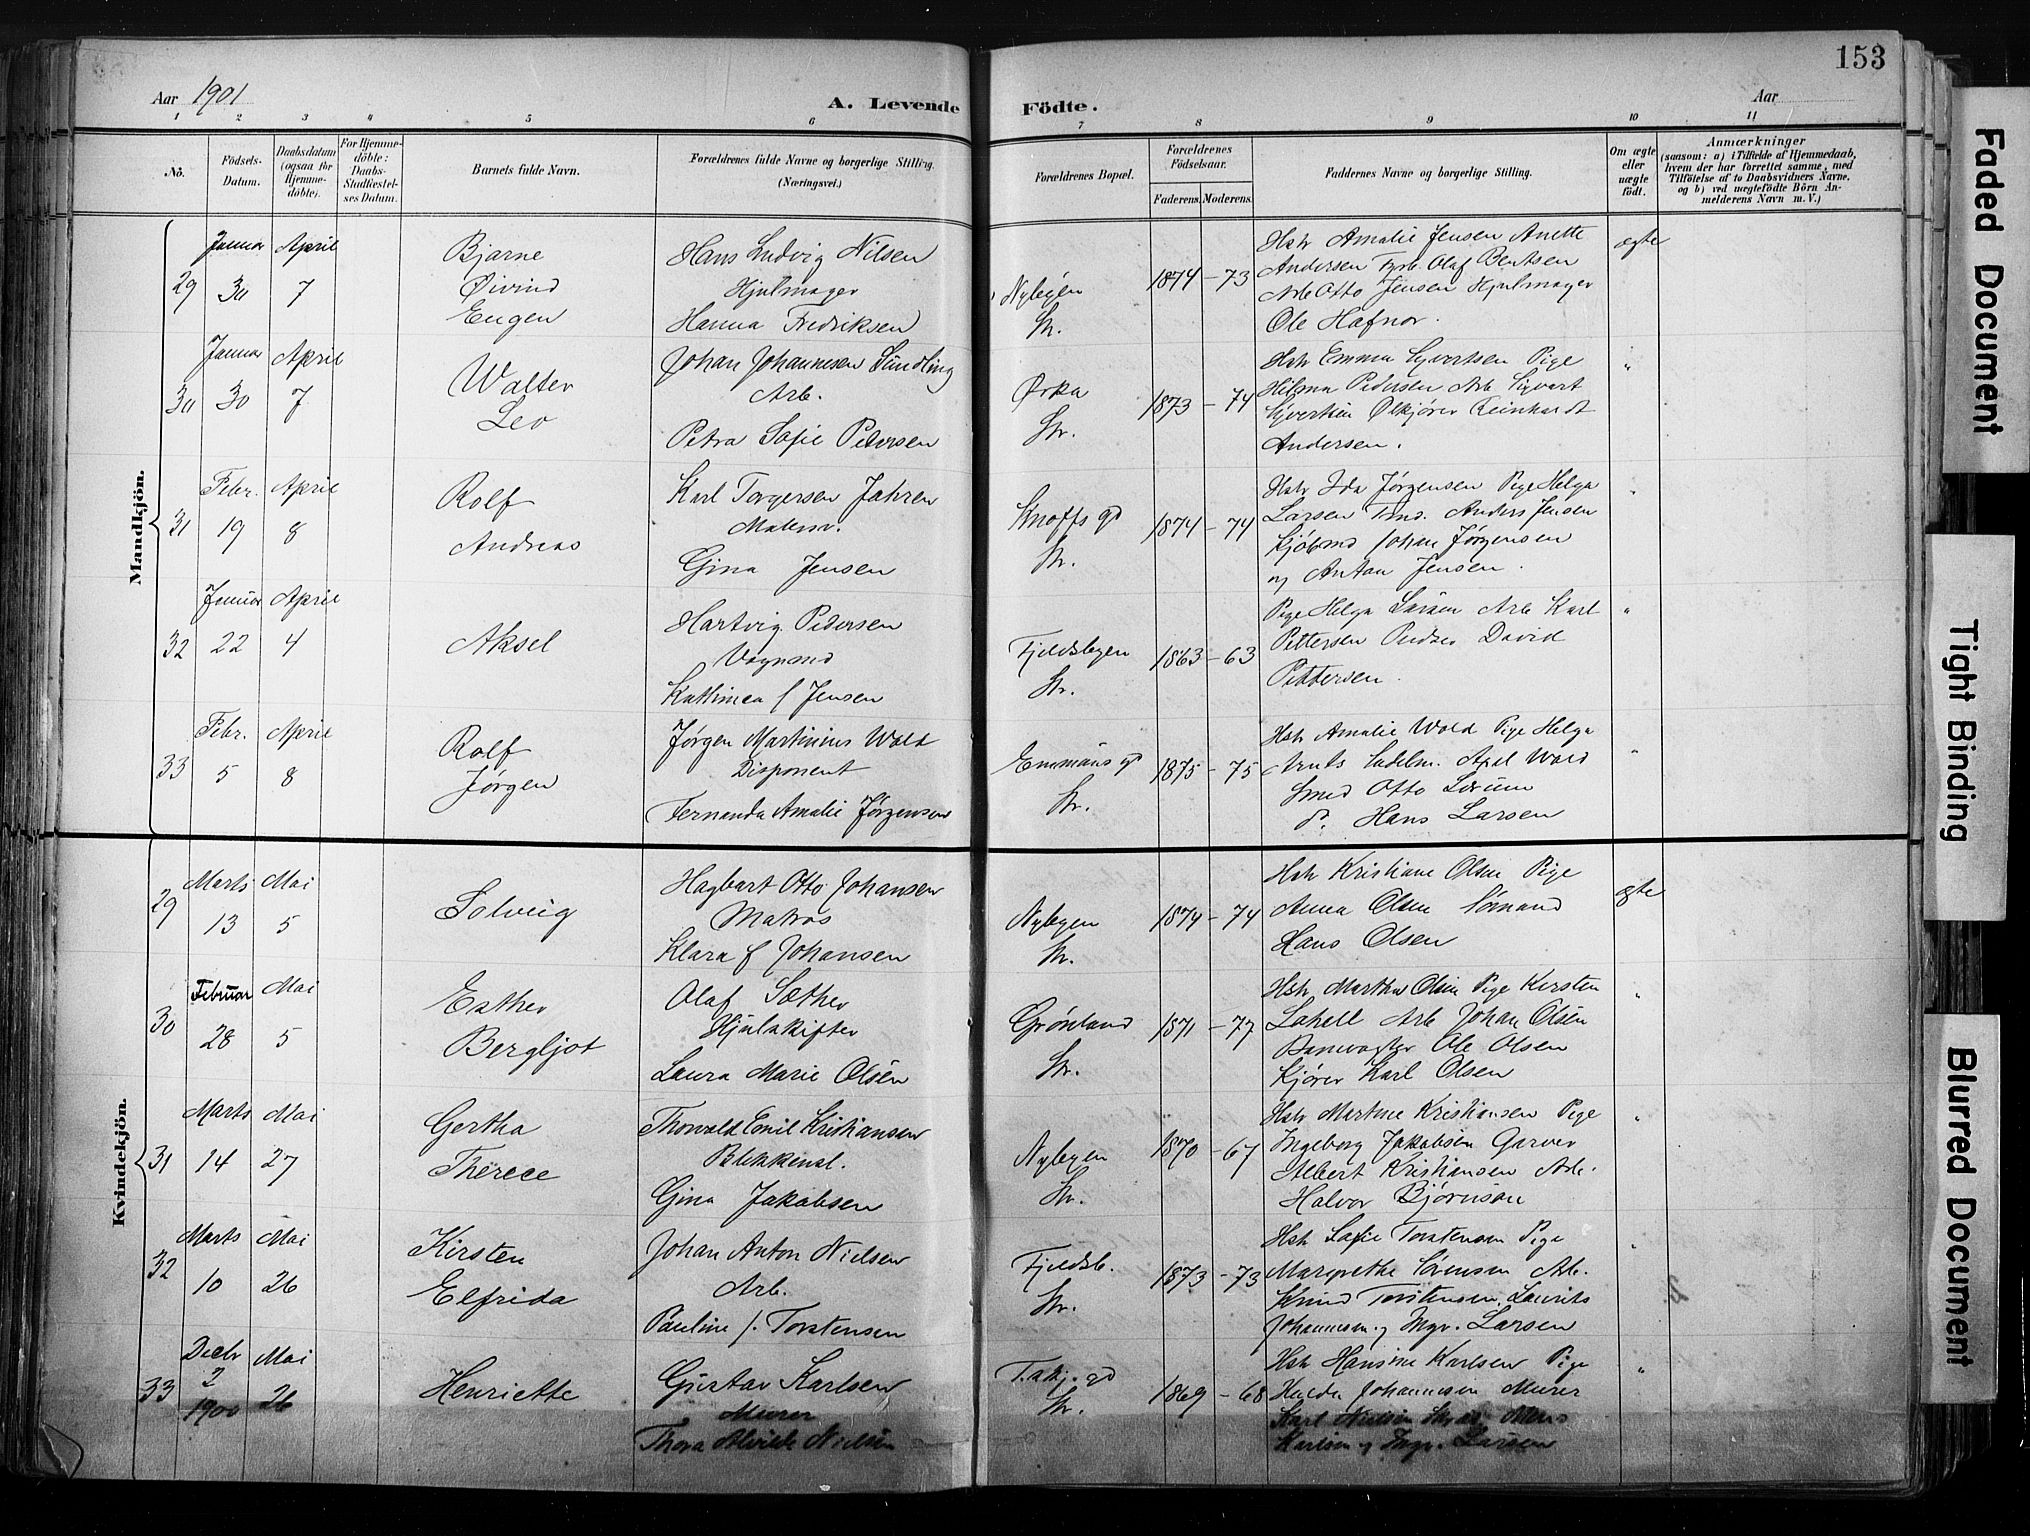 153
Aar 1901
A. Levende Födte.
Aar
1 2 3 4 5 6 7 8 9 10 11
No.
Födsels-Datum.
Daabsdatum (ogsaa for Hjemmedöbte).
For Hjemmedöbte: Daabs-Stadfæstelses Datum.
Barnets fulde Navn.
Forældrenes fulde Navne og borgerlige Stilling. (Næringsvei.)
Forældrenes Bopæl.
Forældrenes Födselsaar.
Faderens. Moderens.
Faddernes Navne og borgerlige Stilling.
Om ægte eller uægte födt.
Anmærkninger
(saasom: a) i Tilfælde af Hjemmedaab, hvem der har forrettet samme, med Tilföielse af to Daabsvidners Navne, og b) ved uægtefödte Börn Anmelderens Navn m. V.)
Mandkjön.
29 Januar 30 April 7
Bjarne Øivind Eugen
Hans Ludvig Nilsen
Hjulmager
Hanna Fredriksen
Nybyen Str.
1874 - 73
Hstr Amalie Jensen Anette
Andersen Fyrb. Olaf Bentsen
Arb Otto Jensen Hjulmager
Ole Hafnor.
ægte
30 Januar 30 April 7
Walter Leo
Johan Johannesen Sundling
Arb.
Petra Sofie Pedersen
Ørka Str.
1873 - 74
Hstr Emma Syvertsen Pige
Hilma Pedersen Arb Sigvart
Syvertsen Ølkjører Reinhardt
Andersen.
"
31 Febr. 19 April 8
Rolf Andreas
Karl Torgersen Jahren
Gina Jensen
Knoffs gd Str.
1874 - 74
Hstr Ida Jørgensen Pige Helga
Larsen Tmd. Anders Jensen
Kjøbmd Johan Jørgensen
og Anton Jensen.
"
32 Januar 22 April 4
Aksel
Hartvig Pedersen
Vognmd
Kathinca f Jensen
Fjeldsbyen Str.
1863 - 63
Pige Helga Larsen Arb Karl
Pettersen David
Pettersen.
"
33 Febr. 5 April 8
Rolf Jørgen
Jørgen Martinius Wold
Disponent
Fernanda Amalie Jørgensen
Emmaus gd Str.
1875 - 75
Hstr Amalie Wold Pige Helga
Sadelm. Axel Wold
Smed Otto
do. Hans Larsen
"
Kvindekjön.
29 Marts 13 Mai 5
Solveig
Hagbart Otto Johansen
Matros
Klara f Johansen
Nybyen Str.
1874 - 74
Hstr Kristiane Olsen Pige
Anna Olsen Sømand
Hans Olsen
ægte
30 Februar 28 Mai 5
Esther Bergljot
Olaf Sæther
Hjulskifter
Laura Marie Olsen
Grønland Str.
1871 - 77
Hstr Martha Olsen Pige Kirsten
Lahell Arb Johan Olsen
Banevogter Ole Olsen
Kjører Karl Olsen
"
31 Marts 14 Mai 27
Gertha Therece
Thorvald Emil Kristiansen
Blikkensl.
Gina Jakobsen
Nybyen Str.
1870 - 67
Hstr Martine Kristiansen Pige
Ingeborg Jakobsen Garver
Albert Kristiansen Arb.
Halvor Bjørnson
"
32 Marts 10 Mai 26
Kirsten Elfrida
Johan Anton Nielsen
Arb.
Pauline f. Torstensen
Fjeldsb. Str.
1873 - 73
Hstr Sofie Torstensen Pige
Margrethe Sørensen Arb.
Knud Torstensen, Laurits
Johannesen og Ingv. Larsen
"
33 Decbr 2 1900 Mai 26
Henriette
Gustav Karlsen
Murer
Thora Alvilde Nielsen
gd Str.
1869 - 68
Hstr Hansine Karlsen Pige
Hulda Johannesen Murer
Karl Nielsen
Karlsen og Ingv. Larsen
"
Faded Document
Tight Binding
Blurred Document